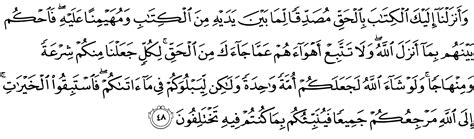 وَأَنزَلْنَآ إِلَيْكَ ٱلْكِتَـٰبَ بِٱلْحَقِّ مُصَدِّقًا لِّمَا بَيْنَ يَدَيْهِ مِنَ ٱلْكِتَـٰبِ وَمُهَيْمِنًا عَلَيْهِ ۖ فَٱحْكُم
بَيْنَهُم بِمَآ أَنزَلَ ٱللَّهُ ۖ وَلَا تَتَّبِعْ أَهْوَآءَهُمْ عَمَّا جَآءَكَ مِنَ ٱلْحَقِّ ۚ لِكُلٍّ جَعَلْنَا مِنكُمْ شِرْعَةً
وَمِنْهَاجًا ۚ وَلَوْ شَآءَ ٱللَّهُ لَجَعَلَكُمْ أُمَّةً وَٰحِدَةً وَلَـٰكِن لِّيَبْلُوَكُمْ فِى مَآ ءَاتَىٰكُمْ ۖ فَٱسْتَبِقُوا۟ ٱلْخَيْرَٰتِ ۚ
إِلَى ٱللَّهِ مَرْجِعُكُمْ جَمِيعًا فَيُنَبِّئُكُم بِمَا كُنتُمْ فِيهِ تَخْتَلِفُونَ ۝٤٨